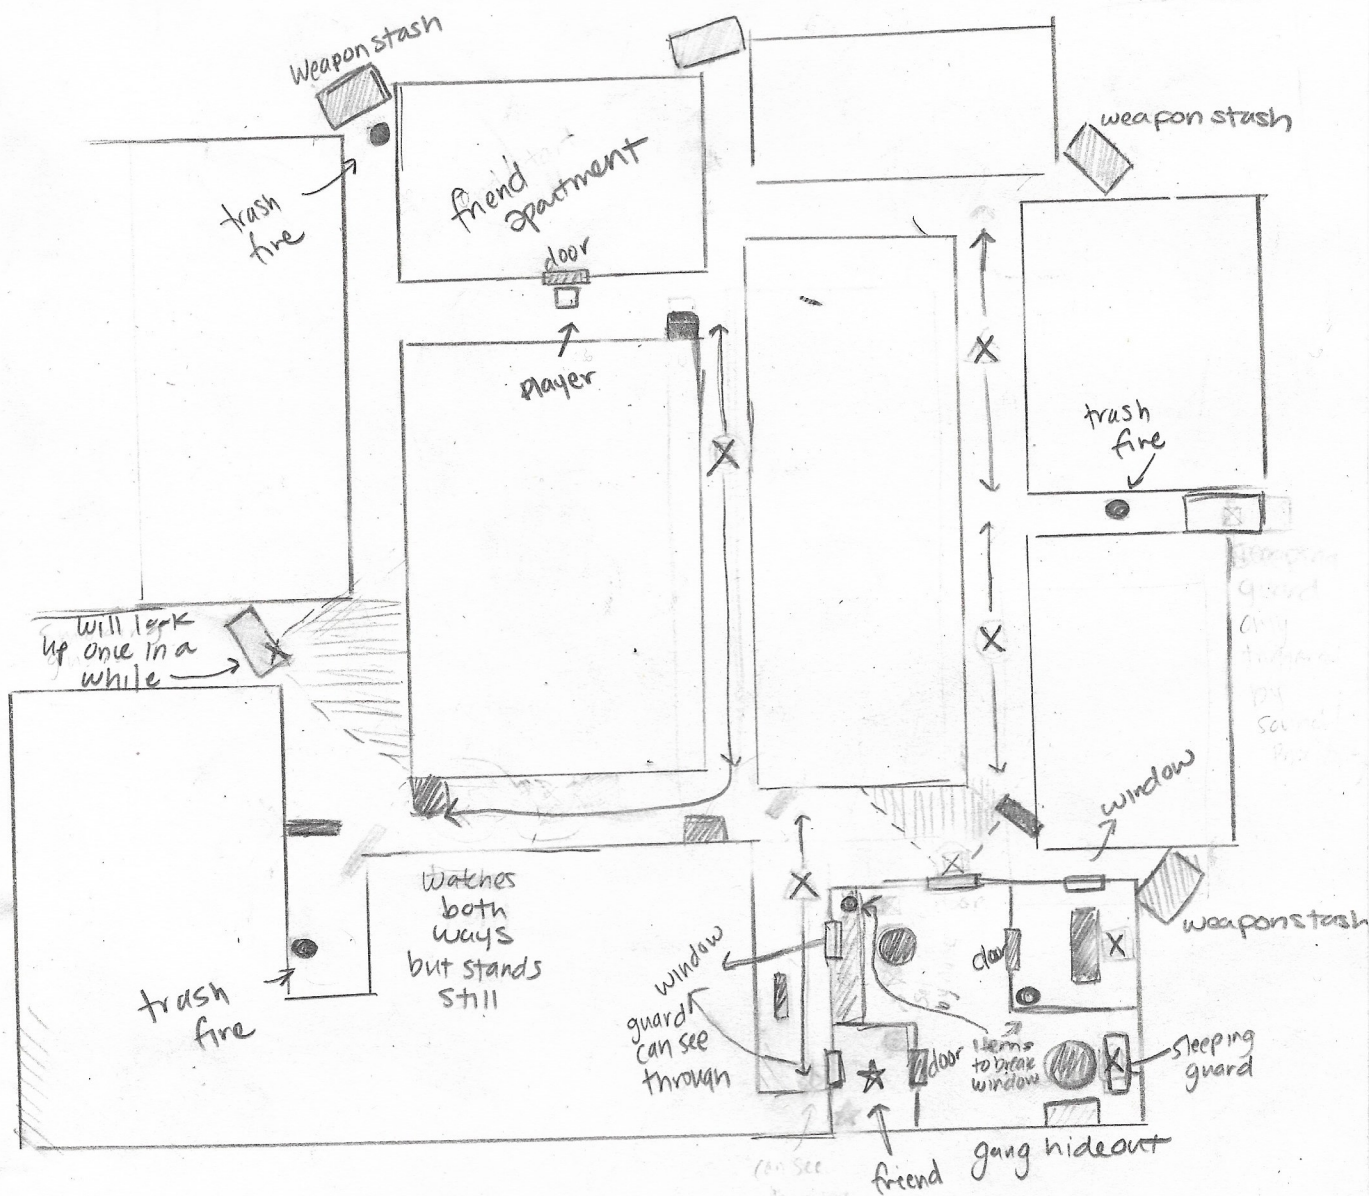 Weapon stash
weapon stash
trash
fire
friend
apartment
door
player
trash
fire
will look
up once in a
while
window
weapon stash
Watches
both
ways
but stands
still
trash
fire
window
guard
can see
through
door
door
items
to break
window
sleeping
guard
gang hideout
friend
can see
guard
by